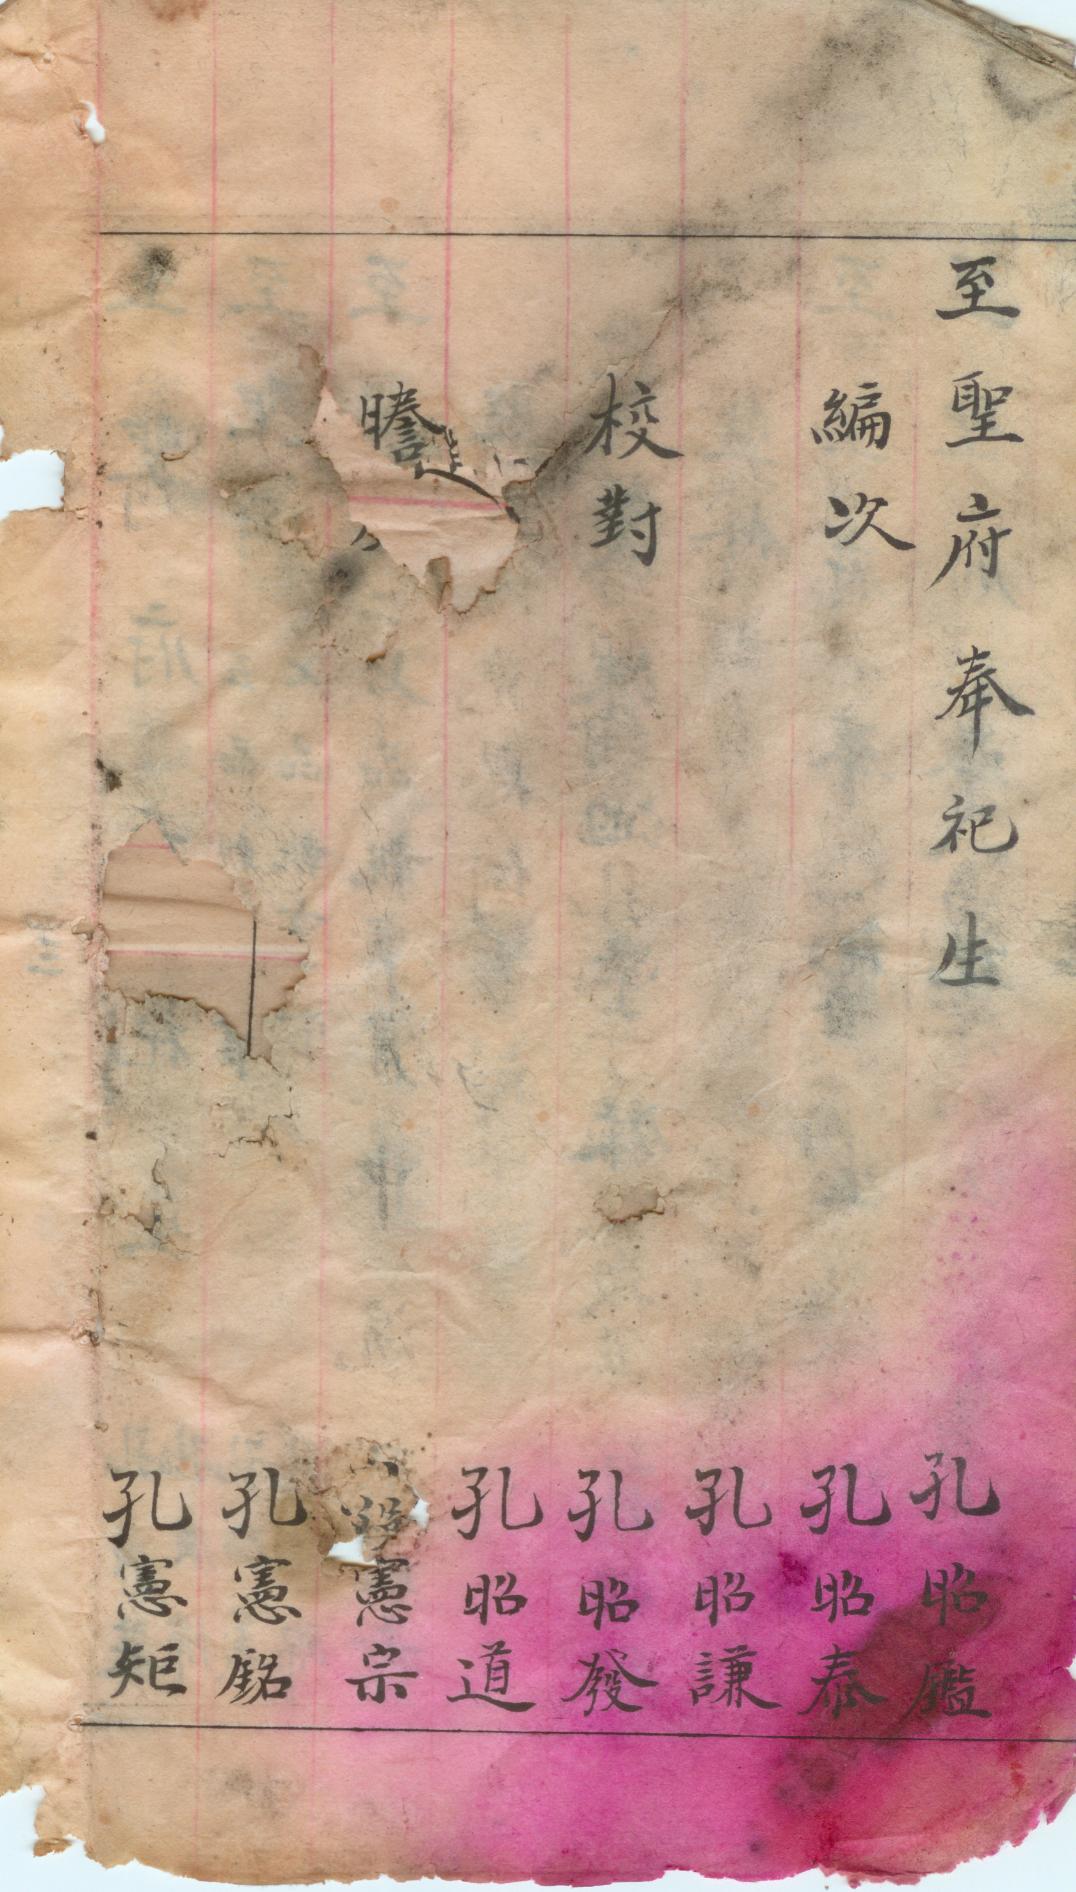 至聖府奉祀生 孔昭鑑
編次 孔昭泰
孔昭謙
校對 孔昭發
孔昭道
憲宗
孔憲銘
孔憲矩